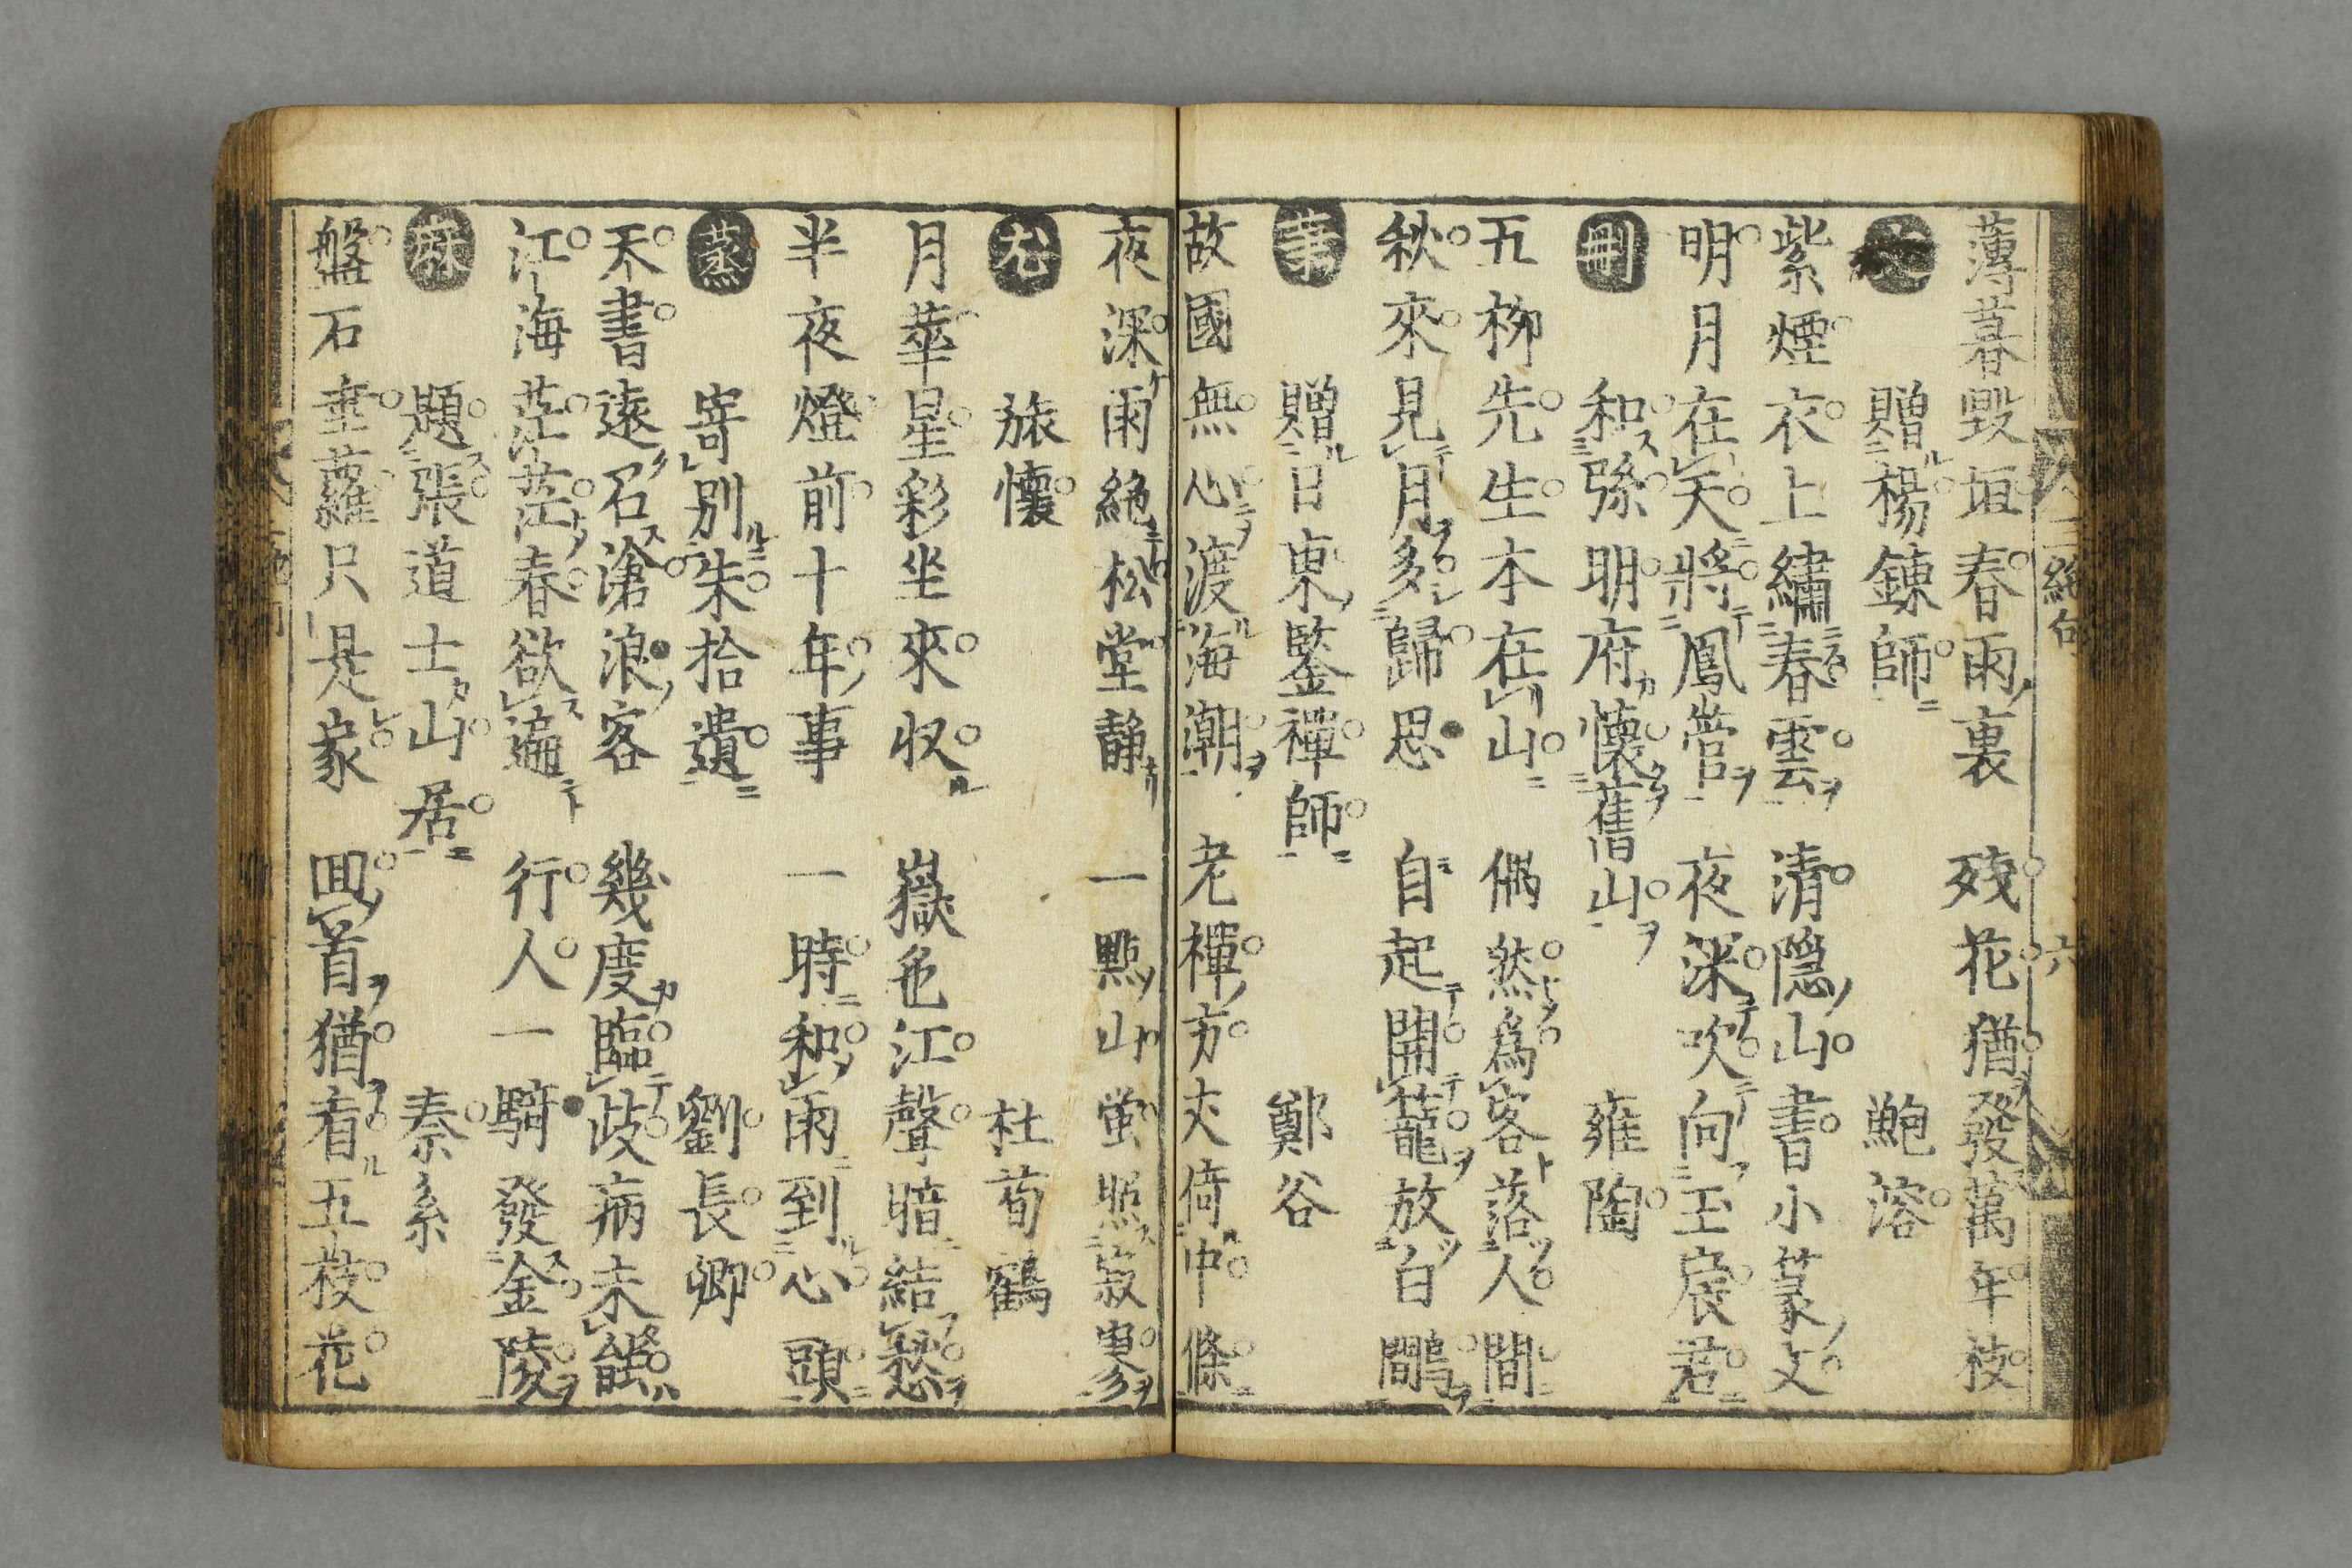 薄暮毀垣春雨裏 殘花猶發萬年枝
贈楊錬師 鮑溶
紫煙衣上繡春雲 清隠山書小篆文
明月在天將鳳管 夜深吹向玉宸君
刪 和孫明府懷舊山 雍陶
五柳先生本在山 偶然爲客落人間
秋來見月多歸思 自起開籠放白鷴
贈日東鑒禪師 鄭谷
故國無心渡海潮 老禪方丈倚中條
夜深雨絶松堂静 一點山蛍照寂寥
尤 旅懷 杜荀鶴
月華星彩坐來収 嶽色江聲暗結愁
半夜燈前十年事 一時和雨到心頭
蒸 寄別朱拾遺 劉長卿
天書遠召滄浪客 幾度臨歧病未能
江海茫茫春欲遍 行人一騎發金陵
麻 題張道士山居 秦系
盤石垂蘿只是家 回首猶看五枝花
三 絶句 六